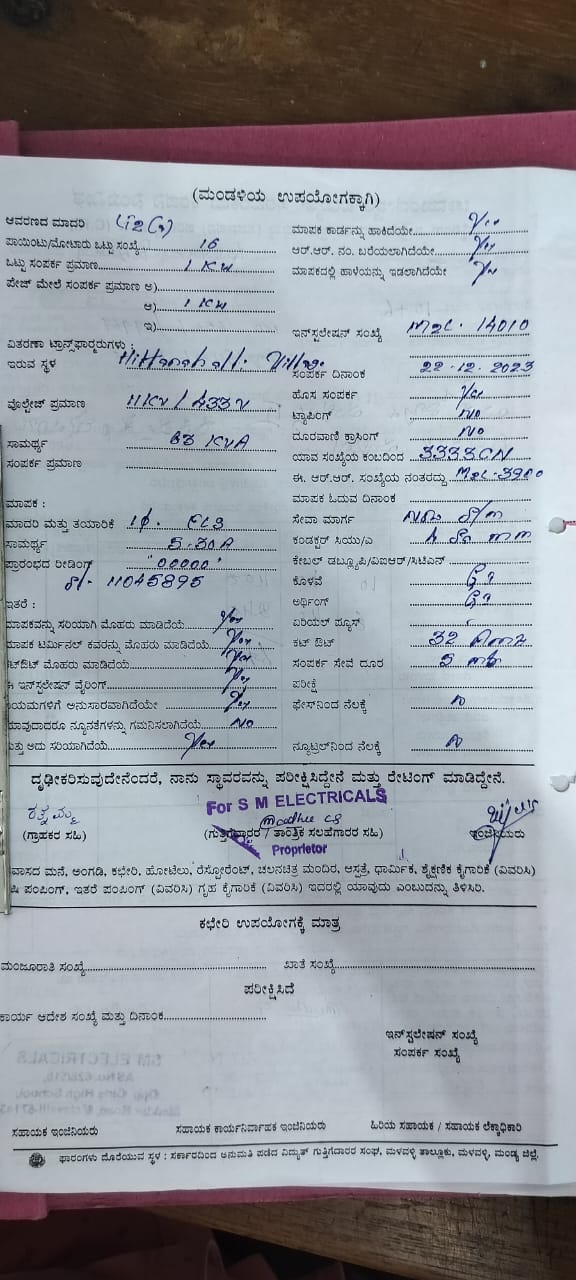 (ಮಂಡಳಿಯ ಉಪಯೋಗಕ್ಕಾಗಿ)
ಆವರಣದ ಮಾದರಿ
ಪಾಯಿಂಟು/ಮೋಟಾರು ಒಟ್ಟು ಸಂಖ್ಯೆ 16
ಒಟ್ಟು ಸಂಪರ್ಕ ಪ್ರಮಾಣ 1 KW
ಪೇಜ್ ಮೇಲೆ ಸಂಪರ್ಕ ಪ್ರಮಾಣ ಅ)
ಆ) 1 KW
ಇ)
ವಿತರಣಾ ಟ್ರಾನ್ಸ್‌ಫಾರ್ಮರುಗಳು :
ಇರುವ ಸ್ಥಳ
ವೊಲ್ಟೇಜ್ ಪ್ರಮಾಣ 11KV / 433V
ಸಾಮರ್ಥ್ಯ 63 KVA
ಸಂಪರ್ಕ ಪ್ರಮಾಣ
ಮಾಪಕ :
ಮಾದರಿ ಮತ್ತು ತಯಾರಿಕೆ 1φ.
ಸಾಮರ್ಥ್ಯ 5-30A
ಪ್ರಾರಂಭದ ರೀಡಿಂಗ್ '00000'
11045895
ಇತರೆ :
ಮಾಪಕವನ್ನು ಸರಿಯಾಗಿ ಮೊಹರು ಮಾಡಿದೆಯೆ Yes
ಮಾಪಕ ಟರ್ಮಿನಲ್ ಕವರನ್ನು ಮೊಹರು ಮಾಡಿದೆಯೆ Yes
ಟ್‌ಔಟ್ ಮೊಹರು ಮಾಡಿದೆಯೆ Yes
ಇನ್‌ಸ್ಟಲೇಷನ್ ವೈರಿಂಗ್ Yes
ಯಮಗಳಿಗೆ ಅನುಸಾರವಾಗಿದೆಯೇ Yes
ಯಾವುದಾದರೂ ನ್ಯೂನತೆಗಳನ್ನು ಗಮನಿಸಲಾಗಿದೆಯೆ NO
ಅದು ಸರಿಯಾಗಿದೆಯೆ Yes
ಮಾಪಕ ಕಾರ್ಡನ್ನು ಹಾಕಿದೆಯೇ Yes
ಆರ್.ಆರ್. ನಂ. ಬರೆಯಲಾಗಿದೆಯೇ Yes
ಮಾಪಕದಲ್ಲಿ ಹಾಳೆಯನ್ನು ಇಡಲಾಗಿದೆಯೇ Yes
ಇನ್‌ಸ್ಟಲೇಷನ್ ಸಂಖ್ಯೆ 14010
ಸಂಪರ್ಕ ದಿನಾಂಕ 22.12.2023
ಹೊಸ ಸಂಪರ್ಕ Yes
ಟ್ಯಾಪಿಂಗ್ NO
ದೂರವಾಣಿ ಕ್ರಾಸಿಂಗ್ NO
ಯಾವ ಸಂಖ್ಯೆಯ ಕಂಬದಿಂದ 3333CN
ಈ. ಆರ್.ಆರ್. ಸಂಖ್ಯೆಯ ನಂತರದ್ದು
ಮಾಪಕ ಓದುವ ದಿನಾಂಕ
ಸೇವಾ ಮಾರ್ಗ
ಕಂಡಕ್ಟರ್ ಸಿಯು/ಎ
ಕೇಬಲ್ ಡಬ್ಲ್ಯೂಪಿ/ಎಐಆರ್/ಸಿಟಿಎನ್
ಕೊಳವೆ
ಅರ್ಥಿಂಗ್
ಏರಿಯಲ್ ಫ್ಯೂಸ್
ಕಟ್ ಔಟ್ 32
ಸಂಪರ್ಕ ಸೇವೆ ದೂರ 5
ಪರೀಕ್ಷೆ
ಫೇಸ್‌ನಿಂದ ನೆಲಕ್ಕೆ
ನ್ಯೂಟ್ರಲ್‌ನಿಂದ ನೆಲಕ್ಕೆ
ದೃಢೀಕರಿಸುವುದೇನೆಂದರೆ, ನಾನು ಸ್ಥಾವರವನ್ನು ಪರೀಕ್ಷಿಸಿದ್ದೇನೆ ಮತ್ತು ರೇಟಿಂಗ್ ಮಾಡಿದ್ದೇನೆ.
For S M ELECTRICALS
ರತ್ನಮ್ಮ
Madhu CS
(ಗ್ರಾಹಕರ ಸಹಿ) (ಗುತ್ತಿಗೆದಾರರ / ತಾಂತ್ರಿಕ ಸಲಹೆಗಾರರ ಸಹಿ) ಇಂಜಿನಿಯರು
Proprietor
ವಾಸದ ಮನೆ, ಅಂಗಡಿ, ಕಛೇರಿ, ಹೋಟೆಲು, ರೆಸ್ಟೋರೆಂಟ್, ಚಲನಚಿತ್ರ ಮಂದಿರ, ಆಸ್ಪತ್ರೆ, ಧಾರ್ಮಿಕ, ಶೈಕ್ಷಣಿಕ ಕೈಗಾರಿಕೆ (ವಿವರಿಸಿ)
ಷಿ ಪಂಪಿಂಗ್, ಇತರೆ ಪಂಪಿಂಗ್ (ವಿವರಿಸಿ) ಗೃಹ ಕೈಗಾರಿಕೆ (ವಿವರಿಸಿ) ಇದರಲ್ಲಿ ಯಾವುದು ಎಂಬುದನ್ನು ತಿಳಿಸಿರಿ.
ಕಛೇರಿ ಉಪಯೋಗಕ್ಕೆ ಮಾತ್ರ
ಮಂಜೂರಾತಿ ಸಂಖ್ಯೆ ಖಾತೆ ಸಂಖ್ಯೆ
ಪರೀಕ್ಷಿಸಿದೆ
ಕಾರ್ಯ ಆದೇಶ ಸಂಖ್ಯೆ ಮತ್ತು ದಿನಾಂಕ
ಇನ್‌ಸ್ಟಲೇಷನ್ ಸಂಖ್ಯೆ
ಸಂಪರ್ಕ ಸಂಖ್ಯೆ
ಸಹಾಯಕ ಇಂಜಿನಿಯರು ಸಹಾಯಕ ಕಾರ್ಯನಿರ್ವಾಹಕ ಇಂಜಿನಿಯರು ಹಿರಿಯ ಸಹಾಯಕ / ಸಹಾಯಕ ಲೆಕ್ಕಾಧಿಕಾರಿ
ಫಾರಂಗಳು ದೊರೆಯುವ ಸ್ಥಳ : ಸರ್ಕಾರದಿಂದ ಅನುಮತಿ ಪಡೆದ ವಿದ್ಯುತ್ ಗುತ್ತಿಗೆದಾರರ ಸಂಘ, ಮಳವಳ್ಳಿ ತಾಲ್ಲೂಕು, ಮಳವಳ್ಳಿ, ಮಂಡ್ಯ ಜಿಲ್ಲೆ.